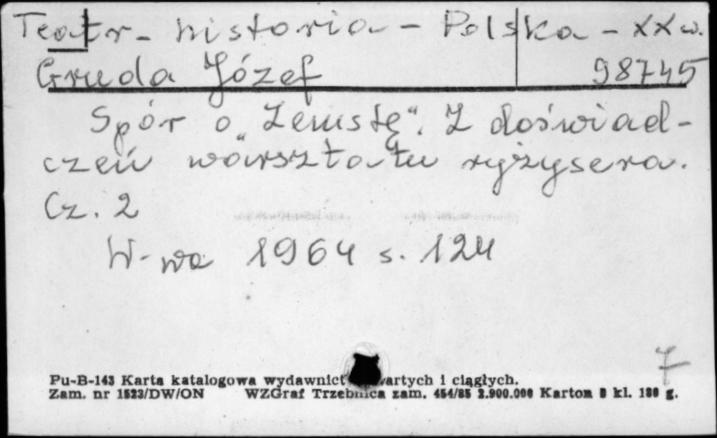 Teatr - historia - Polska - XX w.
Gruda Józef 98745
Spór o „Zemstę". Z doświad-
czeń warsztatu reżysera.
Cz. 2
W-wa 1964 s. 124
7
Pu-B-143 Karta katalogowa wydawnict zwartych i ciągłych.
Zam. nr 1523/DW/ON WZGraf Trzebnica zam. 454/85 2.900.000 Karton B kl. 180 g.